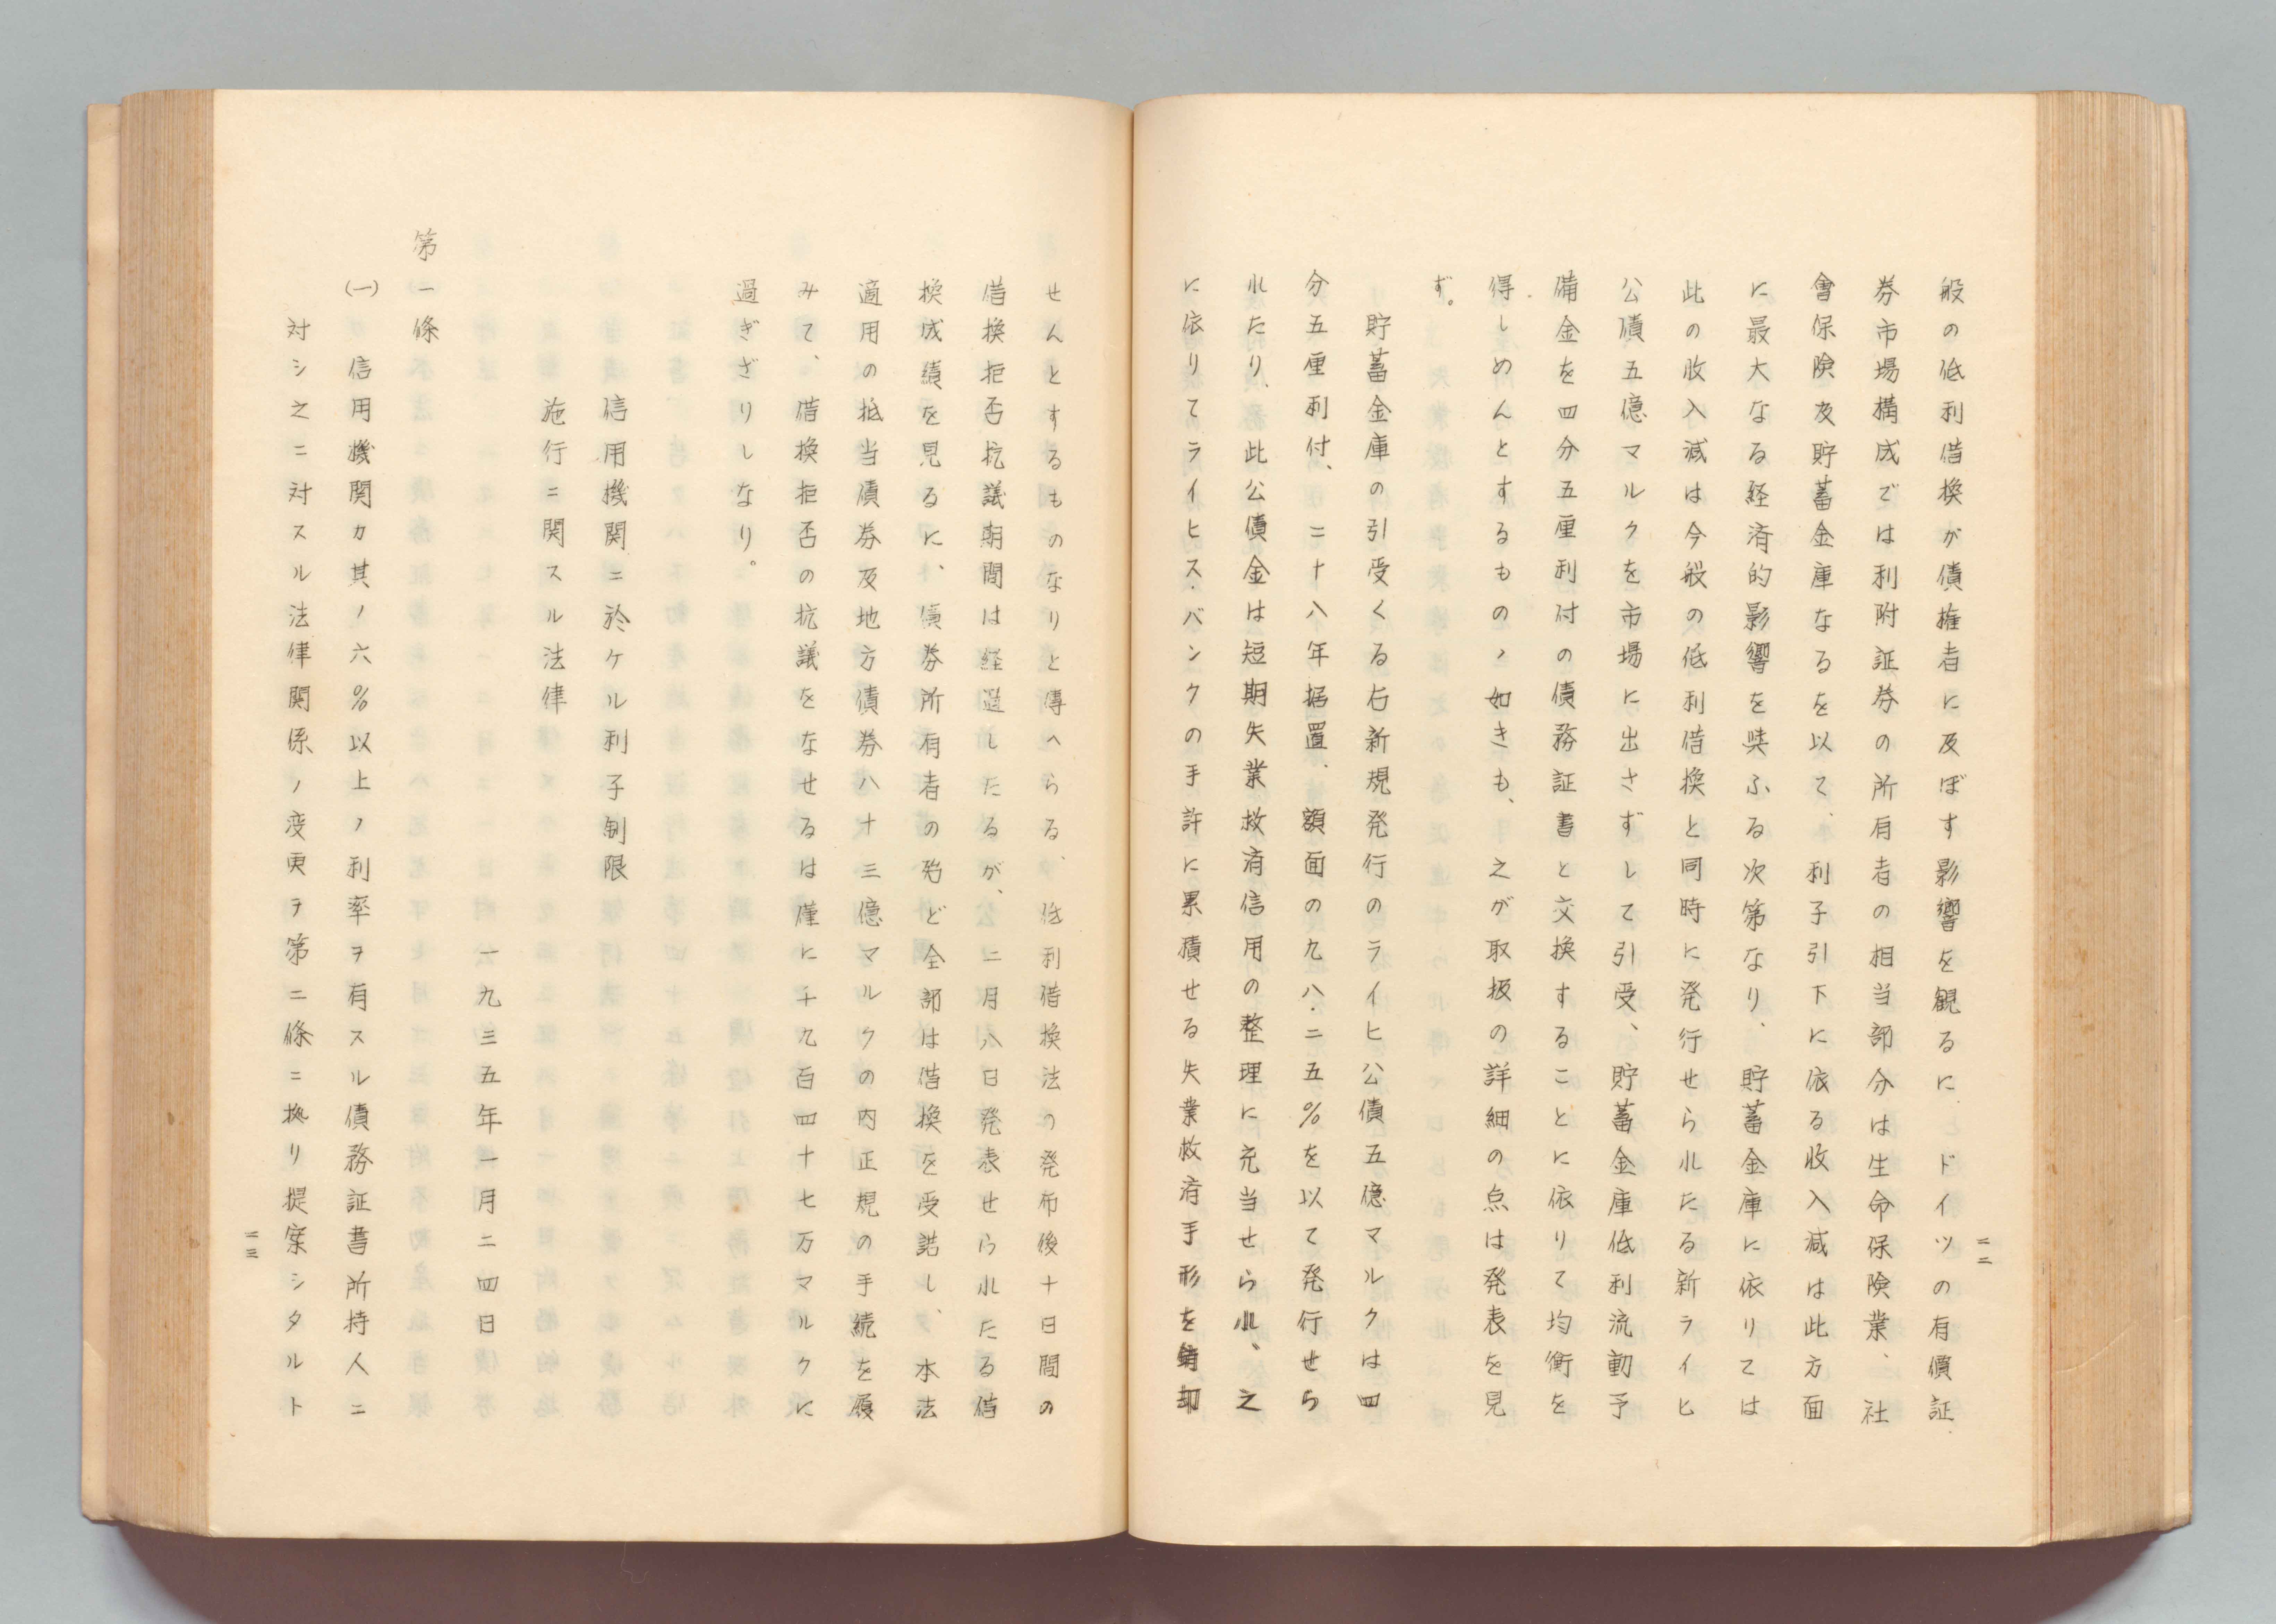 二二
般の低利借換が債権者に及ぼす影響を観るに、ドイツの有價証
券市場構成では利附証券の所有者の相当部分は生命保険業、社
會保険及貯蓄金庫なるを以て、利子引下に依る収入減は此方面
に最大なる経済的影響を與ふる次第なり、貯蓄金庫に依りては
此の收入減は今般の低利借換と同時に発行せられたる新ライヒ
公債五億マルクを市場に出さずして引受、貯蓄金庫低利流動予
備金を四分五厘利付の債務証書と交換することに依りて均衡を
得しめんとするものゝ如きも、之が取扱の詳細の点は発表を見
ず。
貯蓄金庫の引受くる右新規発行のライヒ公債五億マルクは四
分五厘利付、二十八年据置、額面の九八・二五%を以て発行せら
れたり、此公債金は短期失業救済信用の整理に充当せられ、之
に依りてライヒス・バンクの手許に累積せる失業救済手形を銷却
せんとするものなりと傳へらる、低利借換法の発布後十日間の
借換拒否抗議期間は経過したるが、二月八日発表せられたる借
換成績を見るに、債券所有者の殆ど全部は借換を受諾し、本法
適用の抵当債券及地方債券八十三億マルクの内正規の手続を履
みて、借換拒否の抗議をなせるは僅に千九百四十七万マルクに
過ぎざりしなり。
信用機関ニ於ケル利子制限
施行ニ関スル法律
一九三五年一月二四日
第一條
(一) 信用機関カ其ノ六%以上ノ利率ヲ有スル債務証書所持人ニ
対シ之ニ対スル法律関係ノ変更ヲ第二條ニ拠リ提案シタルト
二三